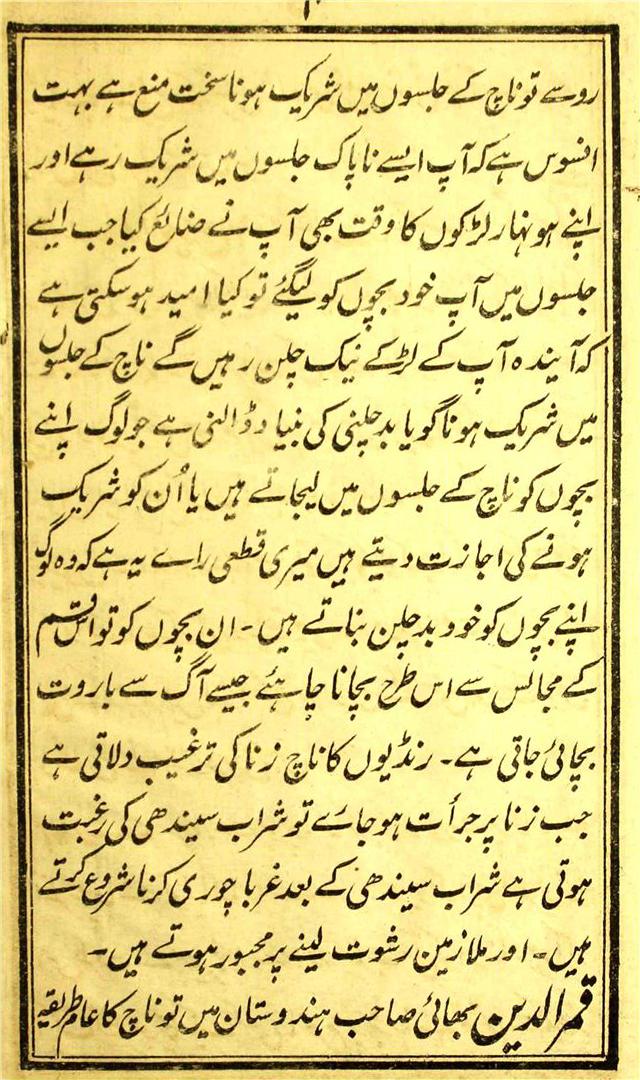 روسے تو ناچ کے جلسوں میں شریک ہونا سخت منع ہے بہت
افسوس ہے کہ آپ ایسے ناپاک جلسوں میں شریک رہے اور
اپنے ہونہار لڑکوں کا وقت بھی آپ نے ضائع کیا جب ایسے
جلسوں میں آپ خود بچوں کو لیگئے تو کیا امید ہوسکتی ہے
کہ آیندہ آپ کے لڑکے نیک چلن رہیں گے ناچ کے جلسوں
میں شریک ہونا گویا بدچلنی کی بنیاد ڈالنی ہے جو لوگ اپنے
بچوں کو ناچ کے جلسوں میں لیجاتے ہیں یا اُن کو شریک
ہونے کی اجازت دیتے ہیں میری قطعی راے یہ ہے کہ وہ لوگ
اپنے بچوں کو خود بدچلن بناتے ہیں۔ ان بچوں کو تو اس قسم
کے مجالس سے اس طرح بچانا چاہئے جیسے آگ سے باروت
بچائی جاتی ہے۔ رنڈیوں کا ناچ زنا کی ترغیب دلاتی ہے
جب زنا پر جرأت ہوجاے تو شراب سیندھی کی رغبت
ہوتی ہے شراب سیندھی کے بعد غربا چوری کرنا شروع کرتے
ہیں۔ اور ملازمین رشوت لینے پر مجبور ہوتے ہیں۔
قمرالدین بھائی صاحب ہندوستان میں تو ناچ کا عام طریقہ